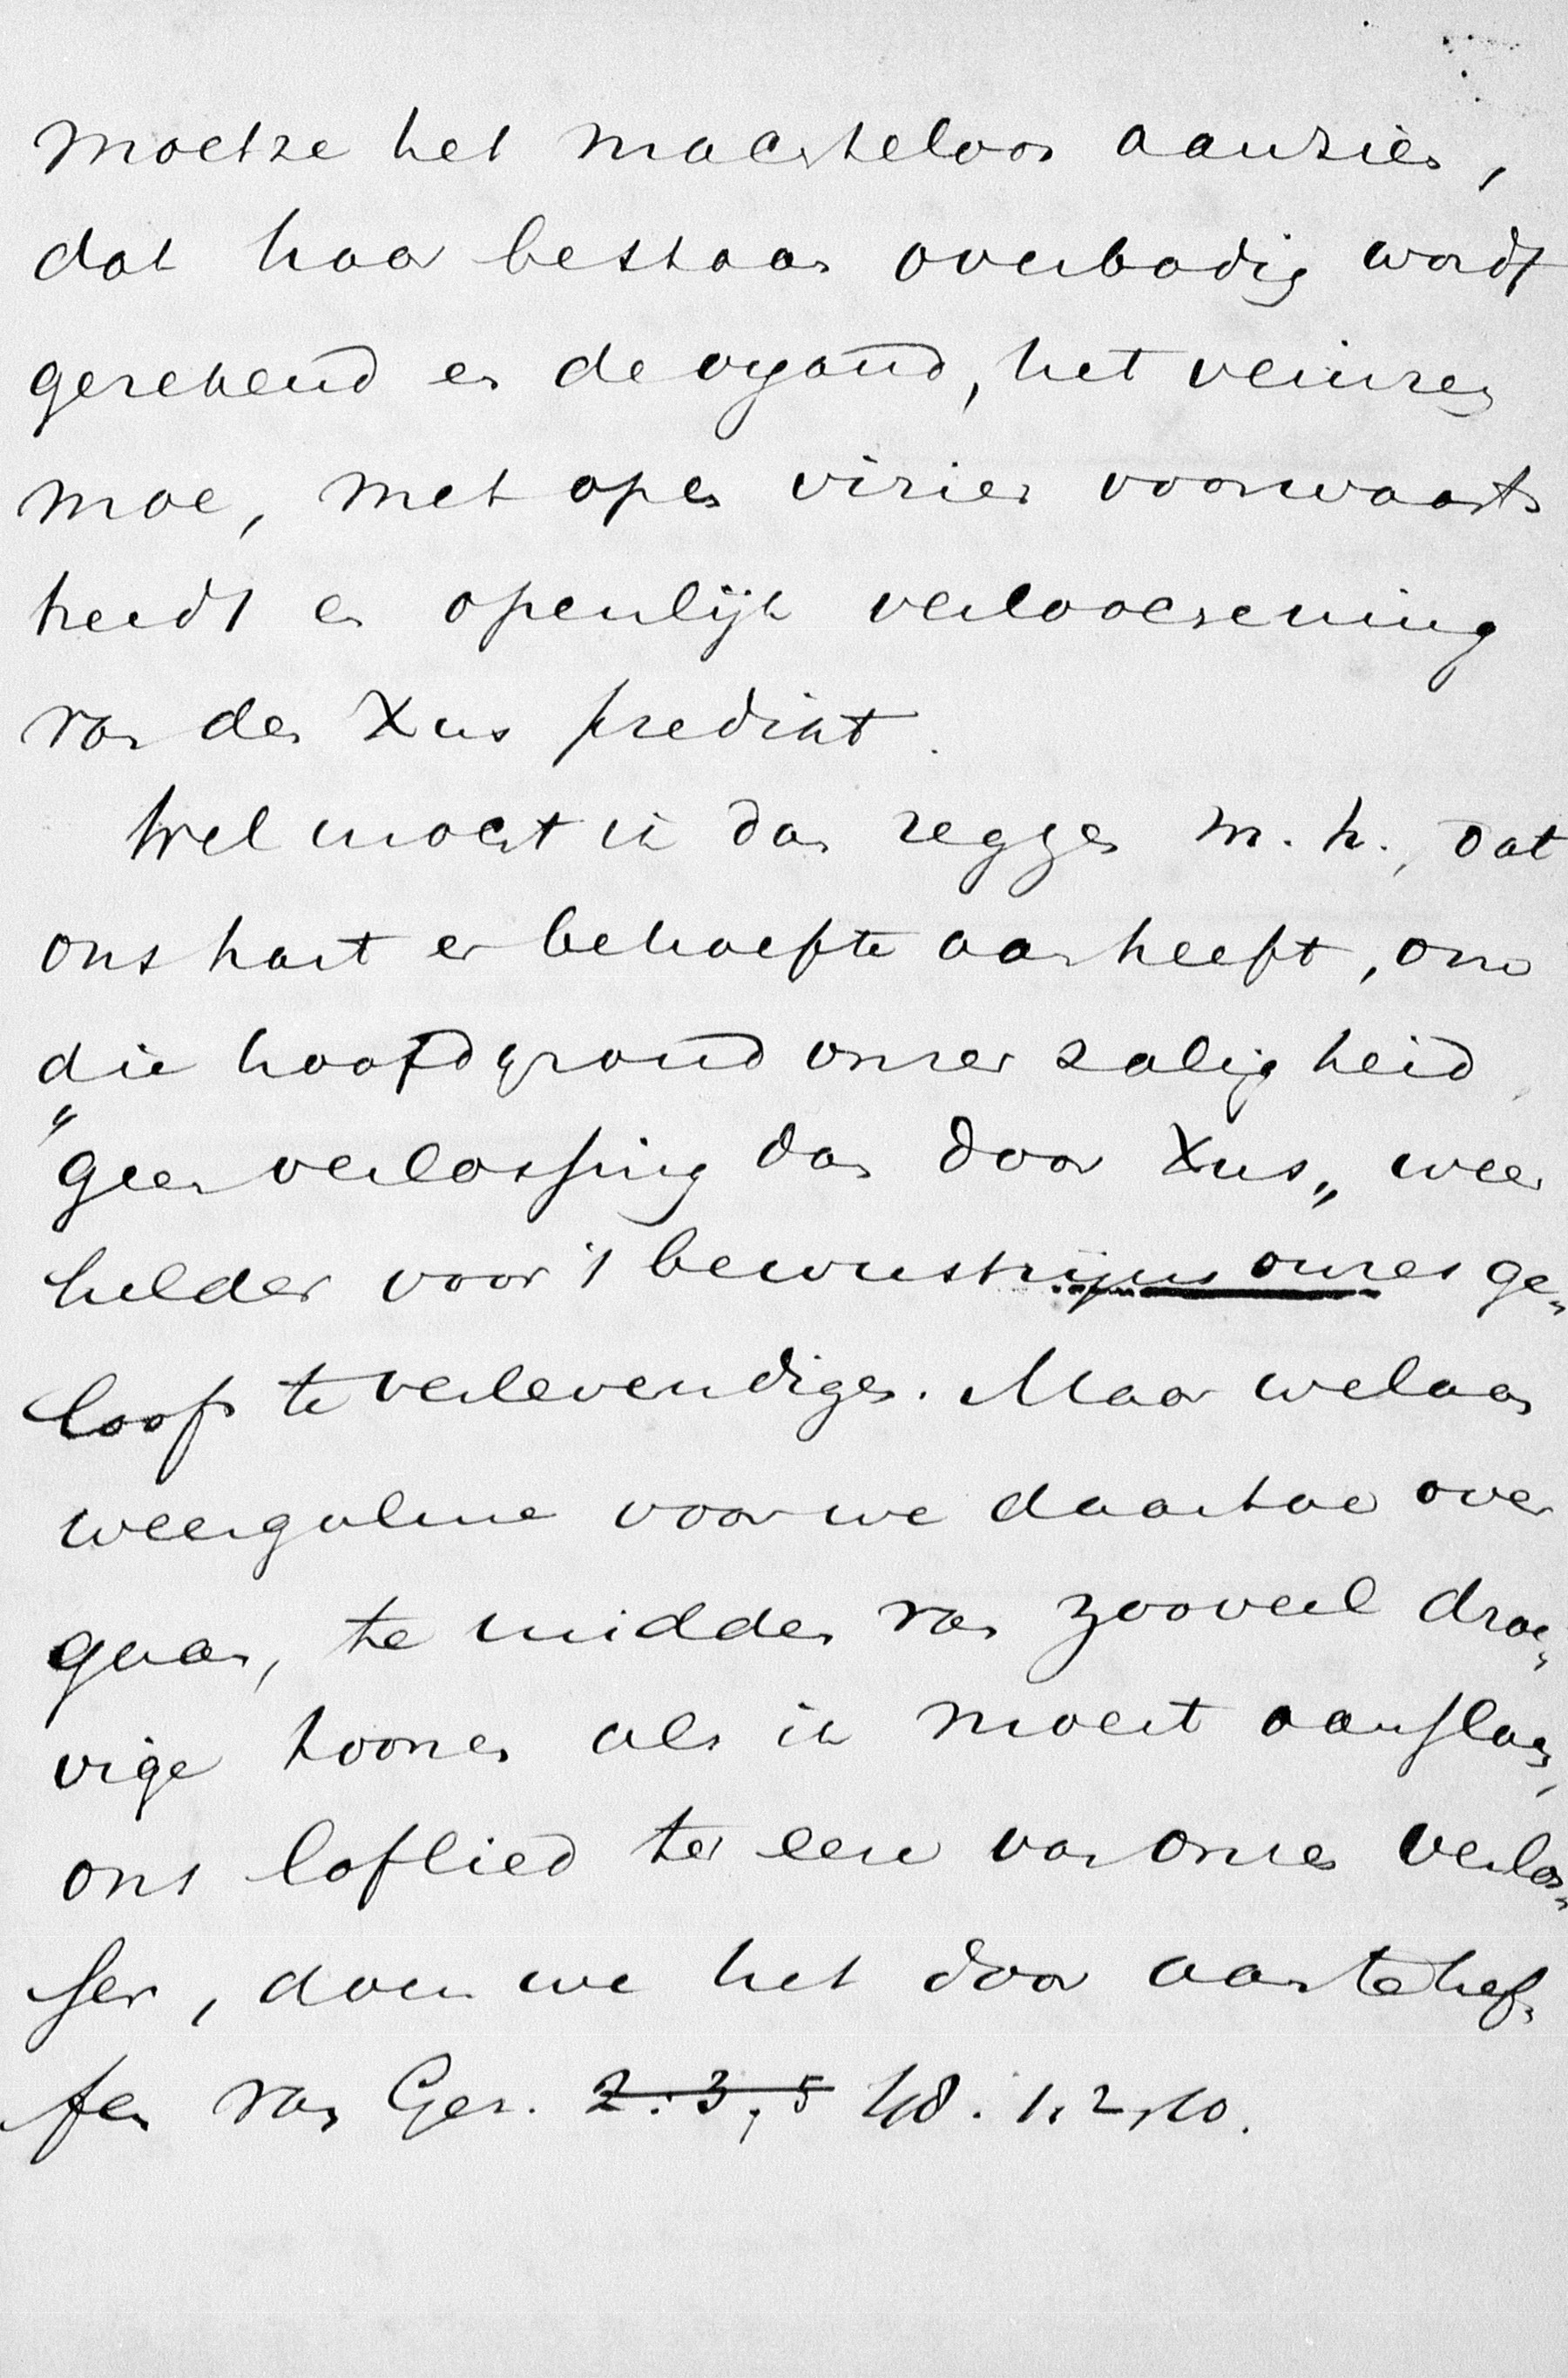 moet ze het machteloos aanzien,
dat haar bestaan overbodig wordt
gerekend en de vyand, het veinzen
moe, met open vizier voorwaarts
treedt en openlijk verloochening
van den Xus predikt.
Wel mocht ik dan zeggen m. h., dat
ons hart er behoefte aan heeft, om
die hoofdgrond onzer zaligheid
"geen verlossing dan door Xus„ weer
helder voor 't bewustzijn onzes ge„
loofs te verlevendigen. Maar welaan
weergalme voor we daartoe over
gaan, te midden van zooveel droe„
vige toonen als ik moest aanslaan,
ons loflied ter eere van onzen verlos„
ser, doen we het door aan te hef„
fen van Gez. 2: 3, 5 48. 1, 2, 10.